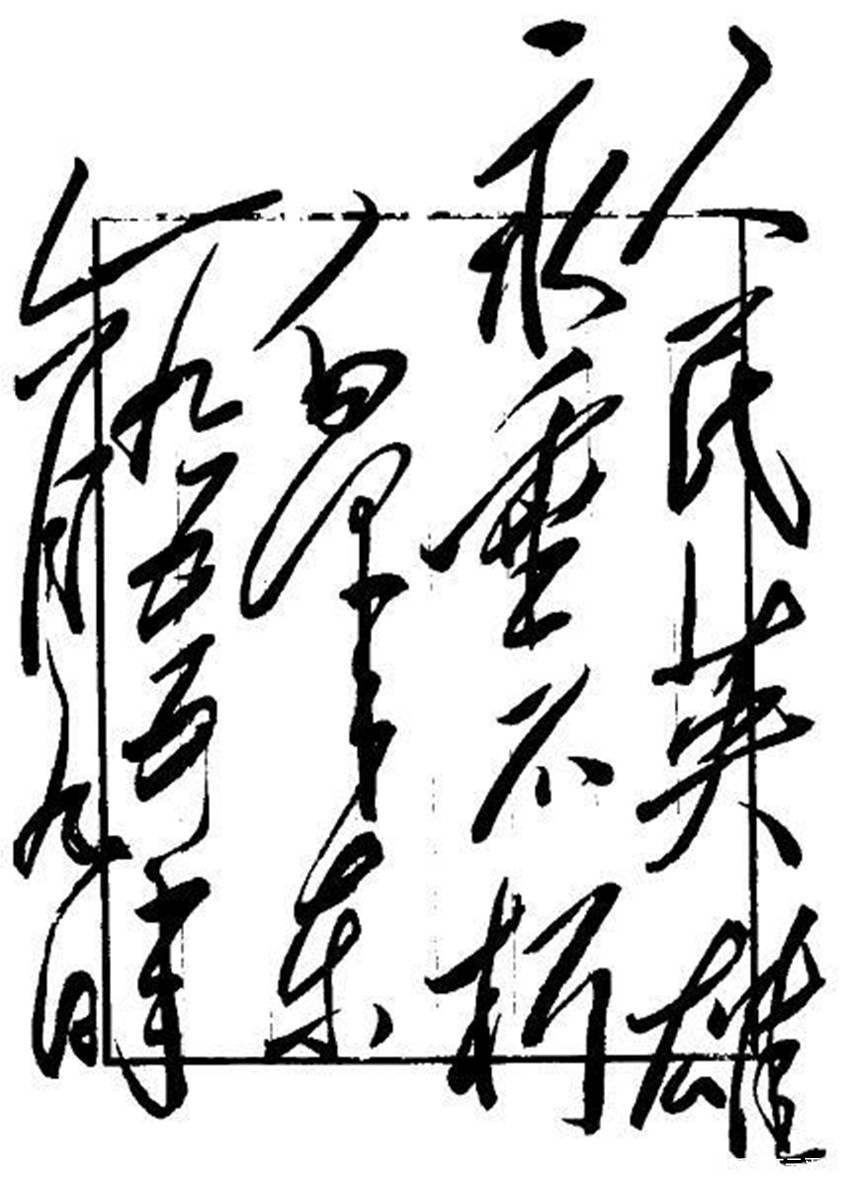 人民英雄
永垂不朽
东
一九五五年
月九日